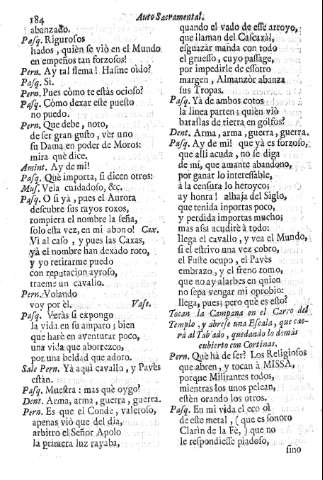 184
Auto Sacramental.
abanzado.
Pasq. Rigurosos
hados, quièn se viò en el Mundo
en empeños tan forzosos?
Pern. Ay tal flema! Hasme oìdo?
Pasq. Si.
Pern. Pues còmo te estàs ocioso?
Pasq. Còmo dexar este puesto
no puedo.
Pern. Què debe, noto,
de ser gran gusto, vèr uno
su Dama en poder de Moros:
mira què dice.
Amint. Ay de mi!
Pasq. Què importa, si dicen otros:
Mus. Vela cuidadoso, &c.
Pasq. O si yà, pues el Aurora
descubre sus rayos roxos,
rompiera el nombre la seña,
solo esta vez, en mi abono! Cax.
Vi al caso, y pues las Caxas,
yà el nombre han dexado roto,
y yo retirarme puedo
con reputacion ayroso,
traeme un cavallo.
Pern. Volando
voy por èl. Vase.
Pasq. Veràs si expongo
la vida en su amparo; bien
que harè en aventurar poco,
una vida que aborrazco,
por una beldad que adoro.
Sale Pern. Yà aquì cavallo, y Pavès
estàn.
Pasq. Muestra: mas què oygo?
Dent. Arma, arma, guerra, guerra.
Pern. Es que el Conde, valeroso,
apenas viò que del dia,
arbitro el Señor Apolo
la primera luz rayaba,
quando el vado de esse arroyo,
que llaman del Cascaxàl,
esguazar manda con todo
el gruesso, cuyo passage,
por impedirle de essotro
margen, Almanzòr abanza
sus Tropas.
Pasq. Yà de ambos cotos
la linea parten; quièn viò
batallas de tierra en golfos?
Dent. Arma, arma, guerra, guerra.
Pasq. Ay de mi! que yà es forzoso,
que allì acuda, no se diga
de mì, que amante abandono,
por ganar lo interessable,
à la censura lo heroyco:
ay honra! alhaja del Siglo,
que tenida inportas poco,
y perdida importas mucho;
mas assi acudirè à todo:
llega el cavallo, y vea el Mundo,
si el estrivo una vez cobro,
el Fuste ocupo, el Pavès
embrazo, y el freno tomo,
que no ay alarbes en quien
no sepa vengar mi oprobio:
llega, pues; pero què es esto?
Tocan la Campana en el Carro del
Templo, y abrese una Escala, que cae-
rà al Tablado, quedando lo demàs
cubierto con Cortinas.
Pern. Què ha de ser? Los Religiosos
que abren, y tocan à MISSA,
porque Militantes todos,
mientras los unos pelean,
estèn orando los otros.
Pasq. En mi vida el eco oì
de este metal, (que es sonoro
Clarin de la Fè,) que no
le respondiesse piadoso,
sino